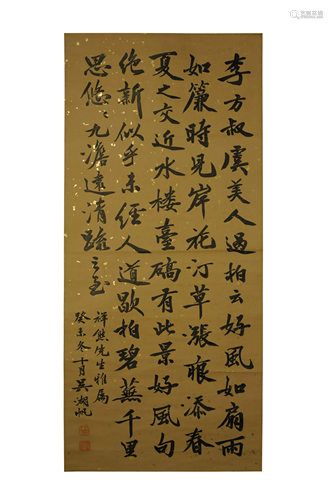 李方叔虞美人過拍云好風如扇雨
如簾時見岸花汀草漲痕添春
夏之交近水樓臺確有此景好風句
絕新似乎未經人道歇拍碧蕪千里
思悠〻尤澹遠清疏之至
祥熊先生雅屬
癸未冬十月吳湖帆